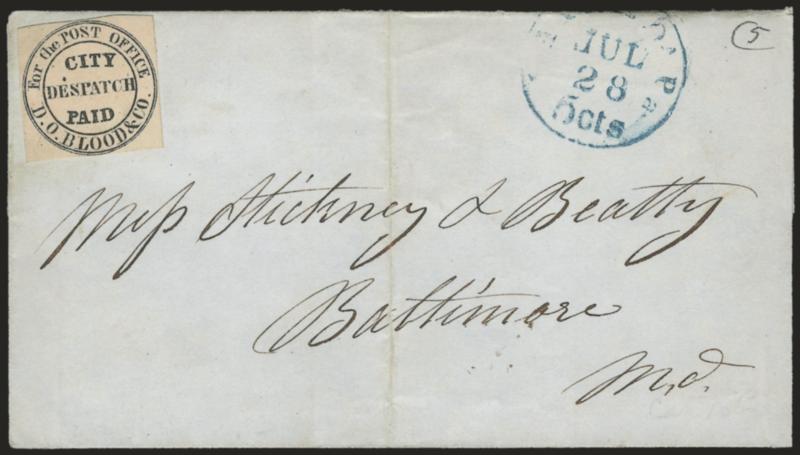 For the POST OFFICE
CITY
DESPATCH
PAID
D.O. BLOOD & CO.
Pa
JUL
28
5cts
5
Mess Stickney & Beatty
Baltimore
Md.